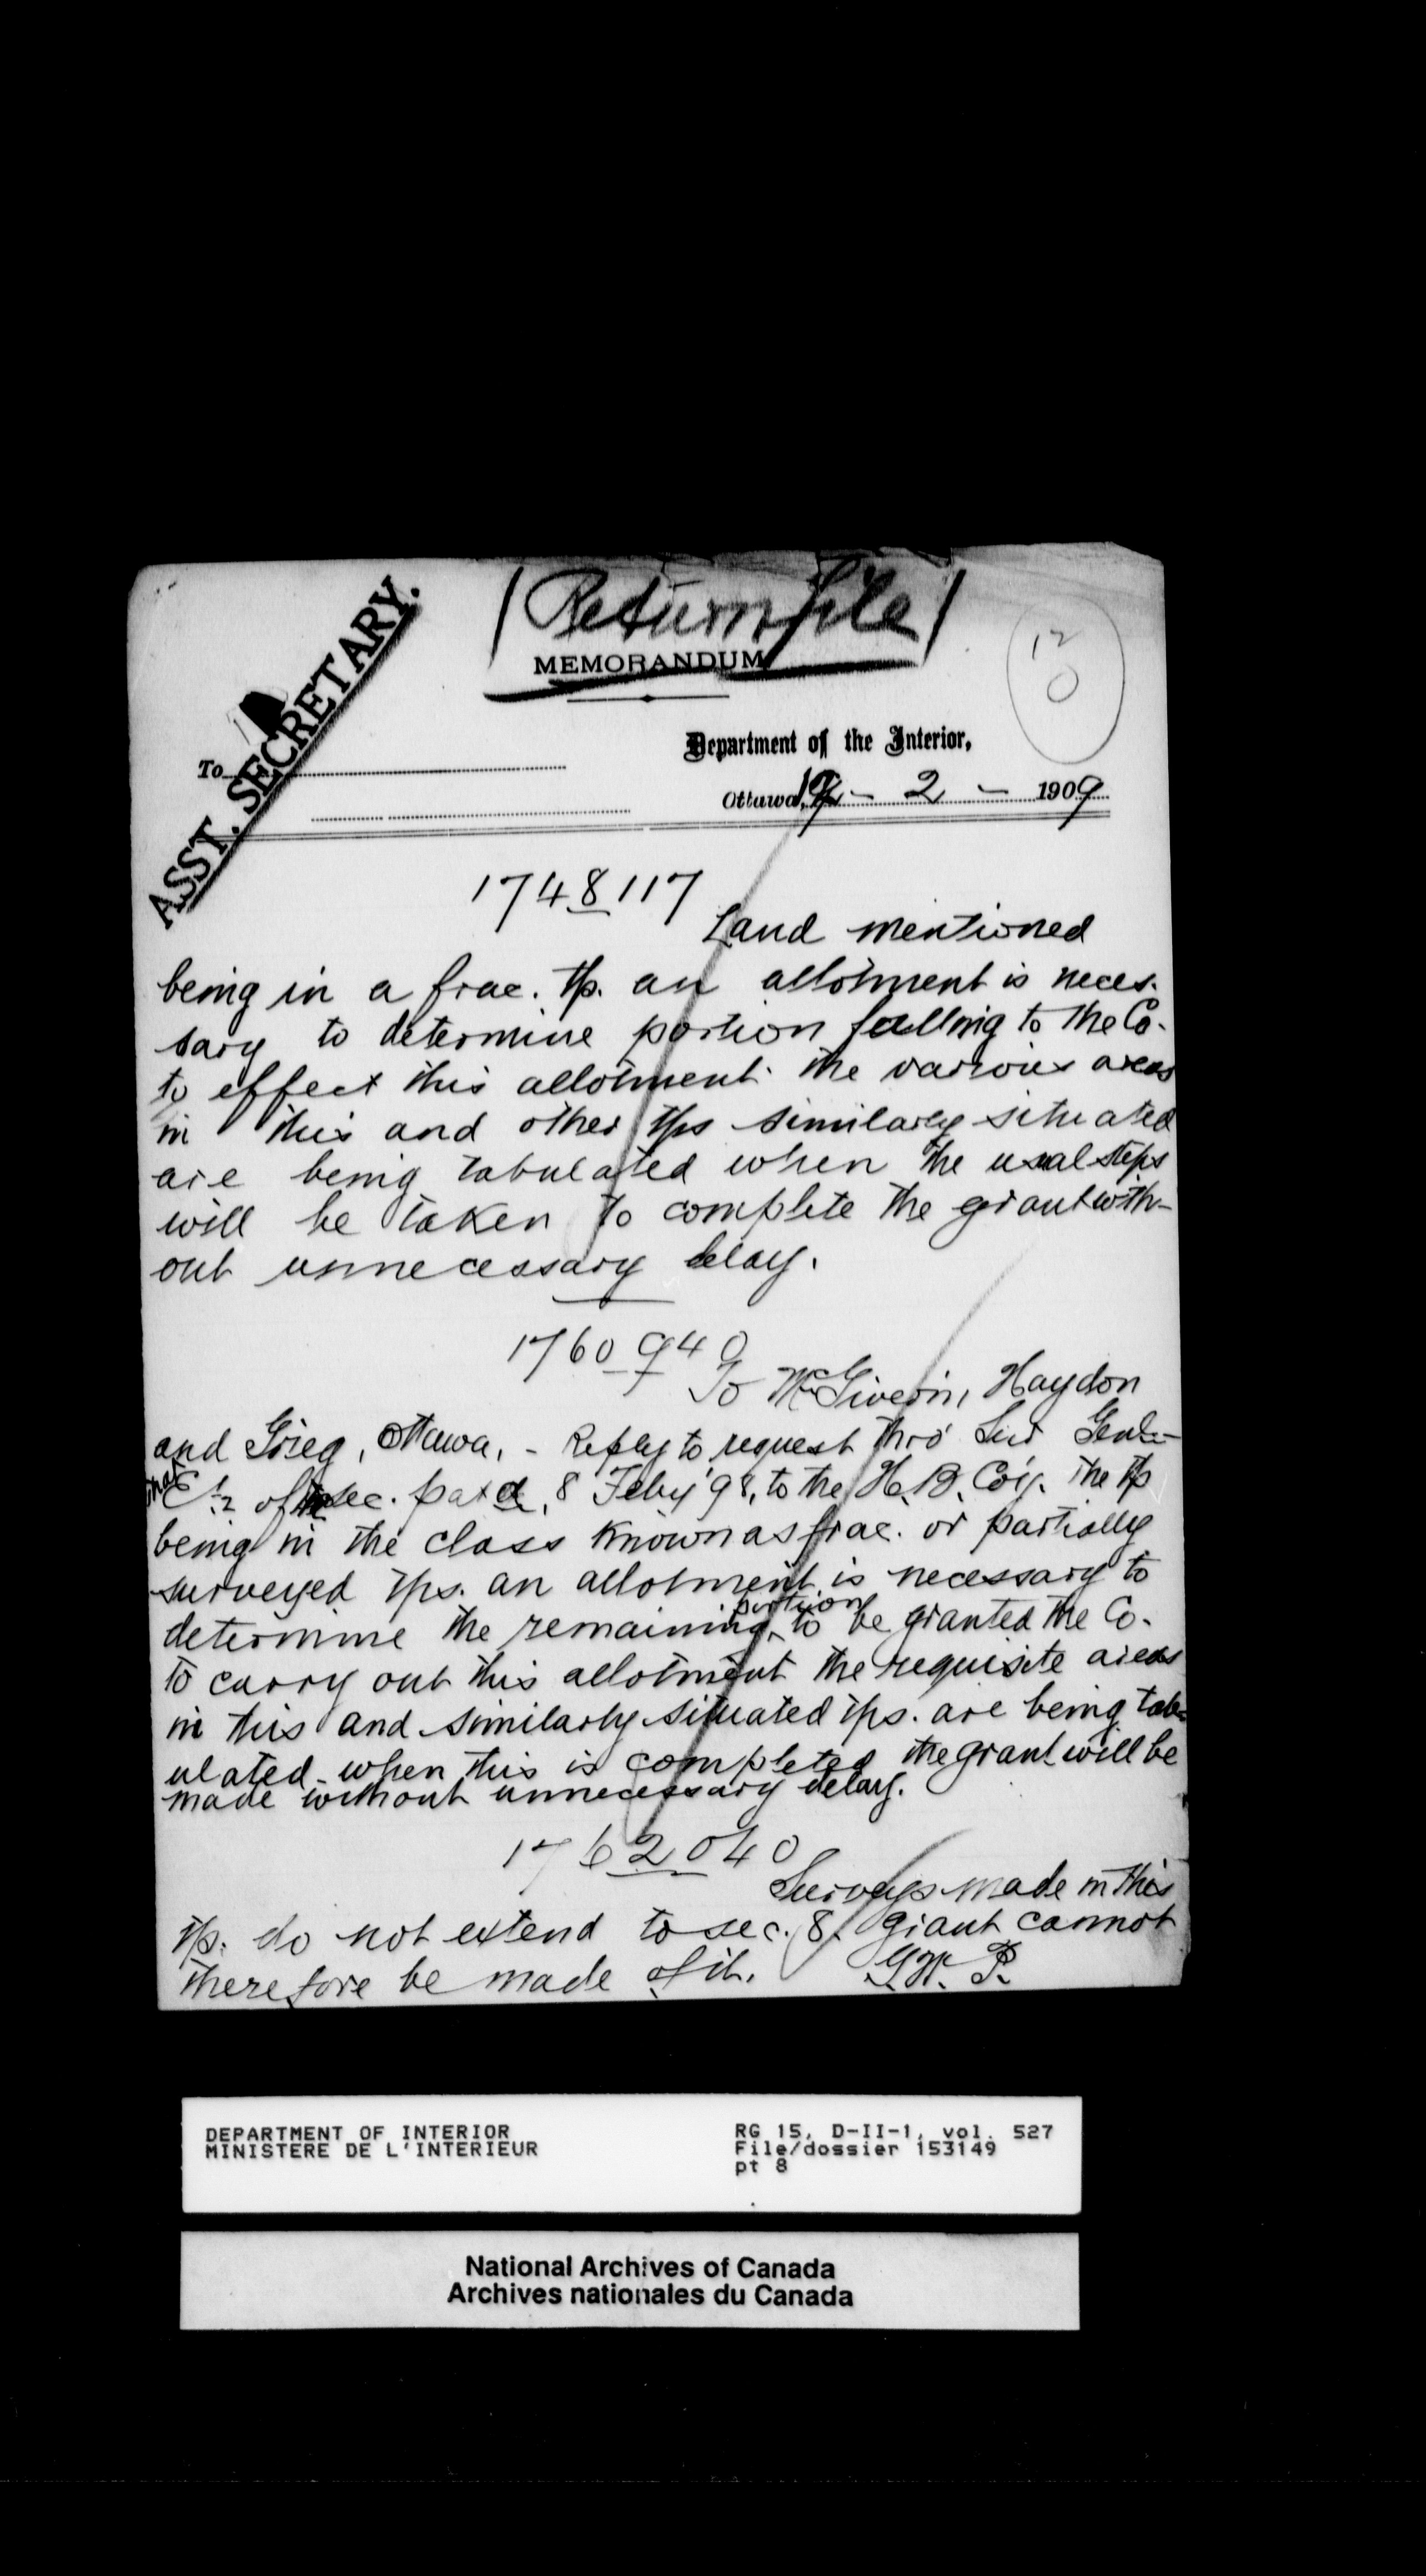 Return file
MEMORANDUM
12
0
ASST. SECRETARY.
Department of the Interior,
To
Ottawa, 12 - 2 - 1909
1748117
Land mentioned
being in a frac. tp. an allotment is neces-
sary to determine portion falling to the Co.
to effect this allotment the various areas
in this and other tps similarly situated
are being tabulated when the usual steps
will be taken to complete the grant with-
out unnecessary delay.
1760940
To McGivern, Haydon
and Grieg, Ottawa, - Reply to request thro'
that E 1/2 of sec. patd, 8 Feby '98, to the H. B. Coy. The tp
being in the class known as frac. or partially
surveyed tps. an allotment is necessary to
determine the remaining portion to be granted the Co.
To carry out this allotment the requisite areas
in this and similarly situated tps. are being tab-
ulated - when this is completed the grant will be
made without unnecessary delay.
1762040
Surveys made in this
tp. do not extend to sec. 8. Grant cannot
therefore be made of it.
DEPARTMENT OF INTERIOR
MINISTERE DE L'INTERIEUR
RG 15, D-II-1, vol. 527
File/dossier 153149
pt 8
National Archives of Canada
Archives nationales du Canada